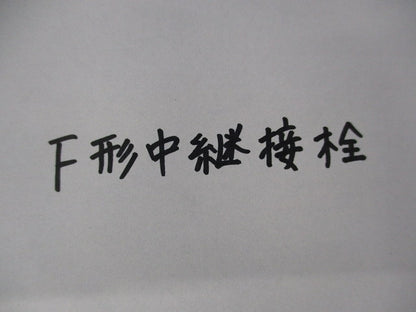 F形中継接栓